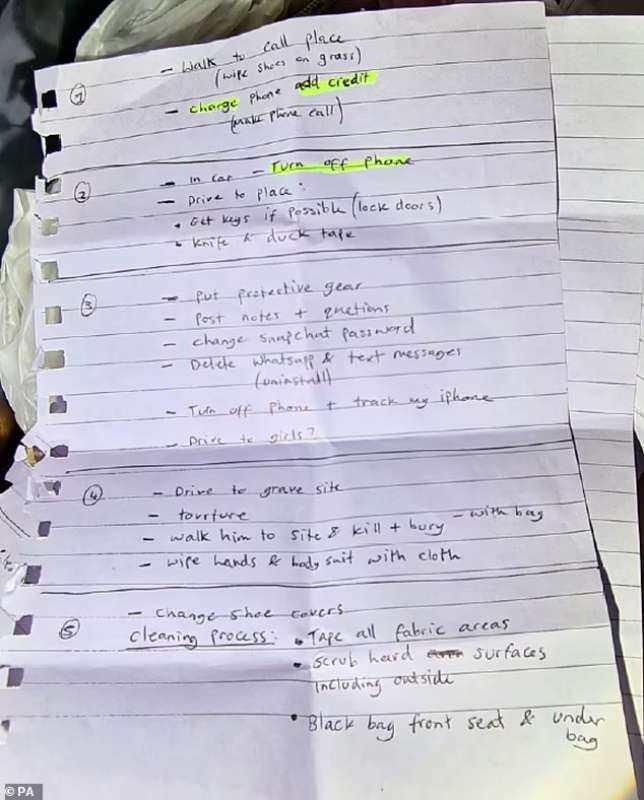 ① - Walk to call place
(wipe shoes on grass)
- charge phone add credit
(make phone call)
② - In car - Turn off phone
- Drive to place:
• Get keys if possible (lock doors)
• Knife & duck tape
③ - Put protective gear
- Post notes + quetions
- change snapchat password
- Delete whatsapp & text messages
(uninstall)
- Turn off phone + track my iphone
- Drive to girls?
④ - Drive to grave site
- tourture
- walk him to site & kill + bury - with bag
- wipe hands & body suit with cloth
⑤ - Change shoe covers
Cleaning process: • Tape all fabric areas
• Scrub hard surfaces
including outside
• Black bag front seat & under
bag
© PA